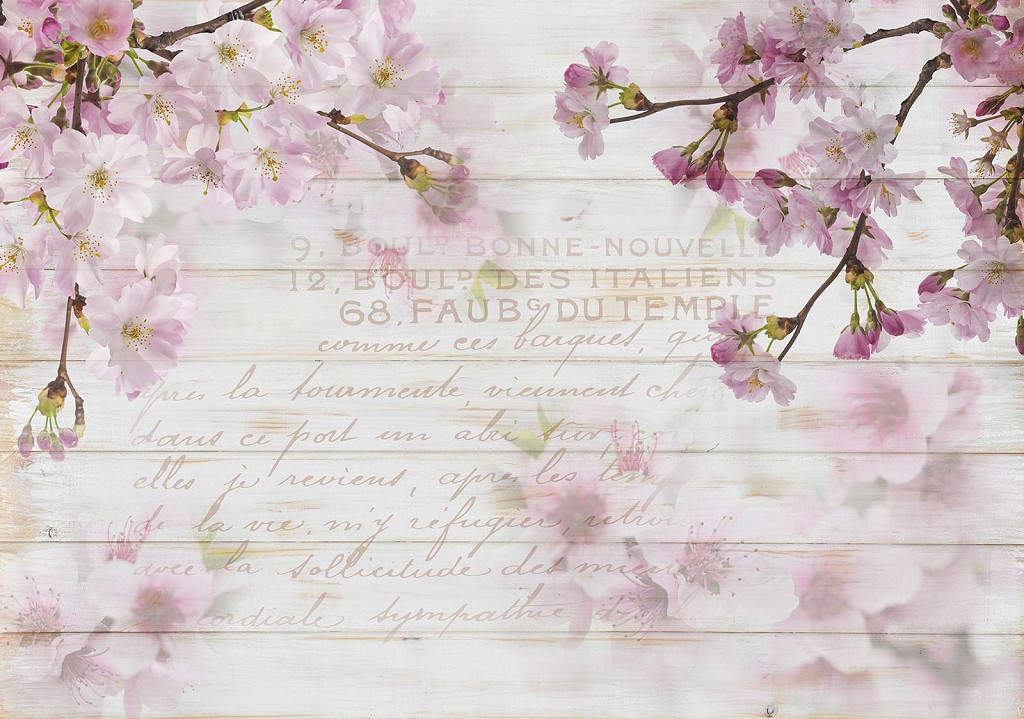 9, BOULD BONNE-NOUVELLE
12, BOULD DES ITALIENS
68, FAUBG DU TEMPLE
comme ces barques, qui
après la tourmente, viennent cher
dans ce port un abri sûr,
elles je reviens, après les tem
de la vie, m'y réfugier, retrou
avec la sollicitude des miens
cordiale sympathie